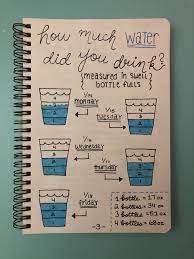 how much water
did you drink?
{measured in swell
bottle fulls}
monday
tuesday
wednesday
thursday
friday
1 bottle = 17 oz
2 bottles = 34 oz
3 bottles = 51 oz
4 bottles = 68 oz
-3-